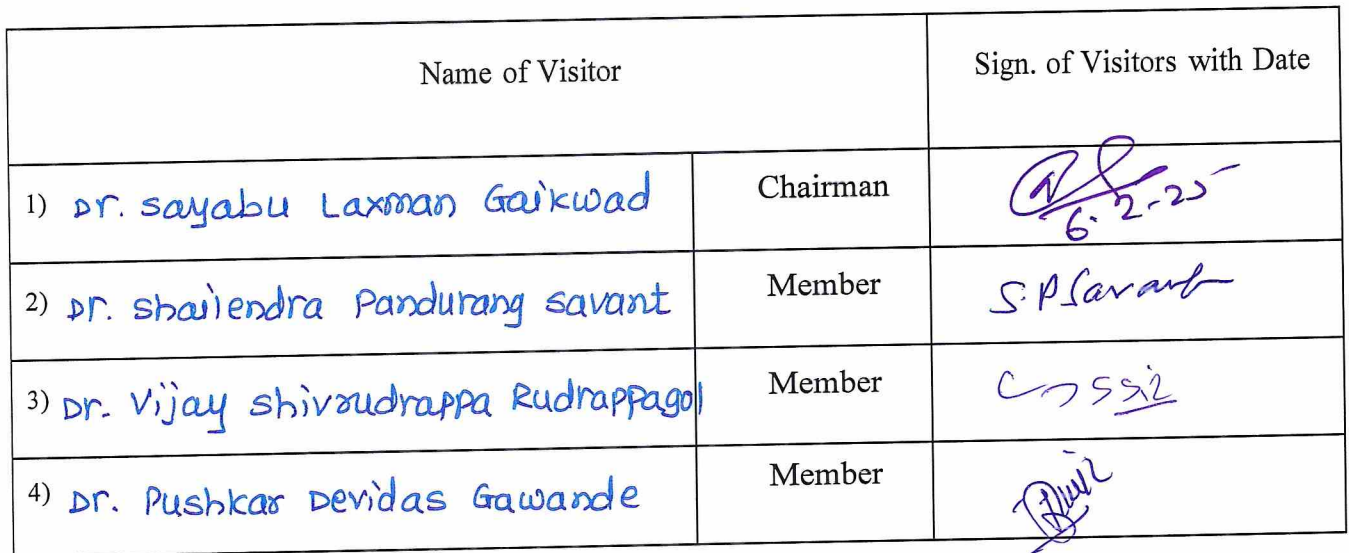 Name of Visitor Sign. of Visitors with Date
1) Dr. Sayabu Laxman Gaikwad Chairman 6-2-25
2) Dr. Shailendra Pandurang Savant Member S.P.Savant
3) Dr. Vijay Shivrudrappa Rudrappagol Member
4) Dr. Pushkar Devidas Gawande Member